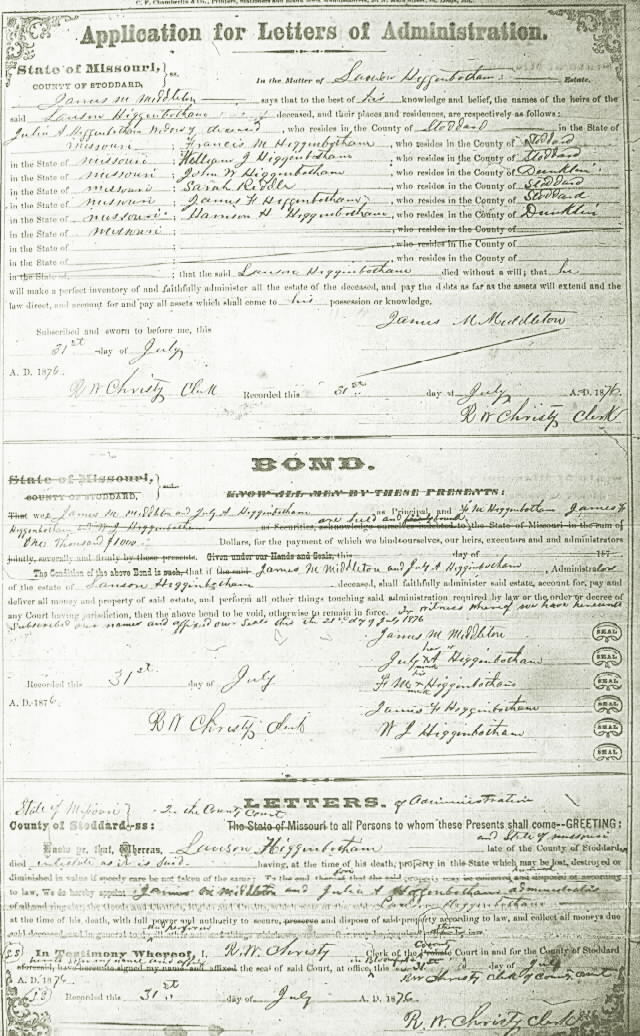 C. F. Chamberlin & Co., Printers, Stationers and
Application for Letters of Administration.
State of Missouri,
COUNTY OF STODDARD, } ss. In the Matter of Lawson Higgenbotham Estate.
James M Middleton says that to the best of his knowledge and belief, the names of the heirs of the
said Lawson Higgenbotham deceased, and their places and residences, are respectively as follows:
Julia A Higgenbotham widow of deceased, who resides in the County of Stoddard in the State of
missouri ; Francis M Higginbotham, who resides in the County of Stoddard
in the State of missouri ; William J Higginbotham, who resides in the County of Stoddard
in the State of missouri ; John W Higginbotham, who resides in the County of Dunklin
in the State of missouri ; Sarah Riddle, who resides in the County of Stoddard
in the State of missouri ; James F Higginbotham, who resides in the County of Stoddard
in the State of missouri ; Harrison H Higginbotham, who resides in the County of Dunklin
in the State of missouri ; , who resides in the County of
in the State of ; , who resides in the County of
in the State of ; , who resides in the County of
in the State of ; that the said Lawson Higginbotham died without a will; that he
will make a perfect inventory of and faithfully administer all the estate of the deceased, and pay the debts as far as the assets will extend and the
law direct, and account for and pay all assets which shall come to his possession or knowledge.
James M Middleton
Subscribed and sworn to before me, this
31st day of July
A. D. 1876.
R W Christy Clerk Recorded this 31st day of July A. D. 1876.
R W Christy Clerk
BOND.
State of Missouri,
COUNTY OF STODDARD, KNOW ALL MEN BY THESE PRESENTS:
That we James M Middleton and July A Higginbotham as Principal and F M Higginbotham James F
Higgenbotham and W J Higginbotham as Securities, acknowledge ourselves indebted are held and firmly bound to the State of Missouri in the sum of
One Thousand $1000 Dollars, for the payment of which we bind ourselves, our heirs, executors and administrators
jointly, severally and firmly by these presents. Given under our Hands and Seals, this day of 187
The Condition of the above Bond is such, that if the said James M Middleton and July A Higginbotham, Administrator
of the estate of Lawson Higginbotham deceased, shall faithfully administer said estate, account for, pay and
deliver all money and property of said estate, and perform all other things touching said administration required by law or the order or decree of
any Court having jurisdiction, then the above bond to be void, otherwise to remain in force. In witness whereof we have hereunto
Subscribed our names and affixed our Seals this the 21st day of July 1876
James M Middleton SEAL
July A her x mark Higginbotham SEAL
F M his x mark Higginbotham SEAL
Recorded this 31st day of July
A. D. 1876. James F Higginbotham SEAL
R W Christy Clerk W J Higginbotham SEAL
SEAL
LETTERS. of Administration
State of Missouri In the County Court
County of Stoddard--ss: The State of Missouri to all Persons to whom these Presents shall come--GREETING:
Know ye, that, Whereas, Lawson Higginbotham late of the County of Stoddard and State of missouri
died intestate as it is said. having, at the time of his death, property in this State which may be lost, destroyed or
diminished in value if speedy care be not taken of the same;
to law, We do hereby appoint James M Middleton and Julia A Higginbotham administrators
at the time of his death, with full power and authority to secure, preserve and dispose of said property according to law, and collect all moneys due
said deceased, and in general to
In Testimony Whereof, I, R. W. Christy Clerk of the County Court in and for the County of Stoddard
aforesaid, have hereunto signed my name and affixed the seal of said Court, at office, this 31 day of July
A. D. 1876. R W Christy Clerk County Court
Recorded this 31st day of July A. D. 1876.
R. W. Christy Clerk